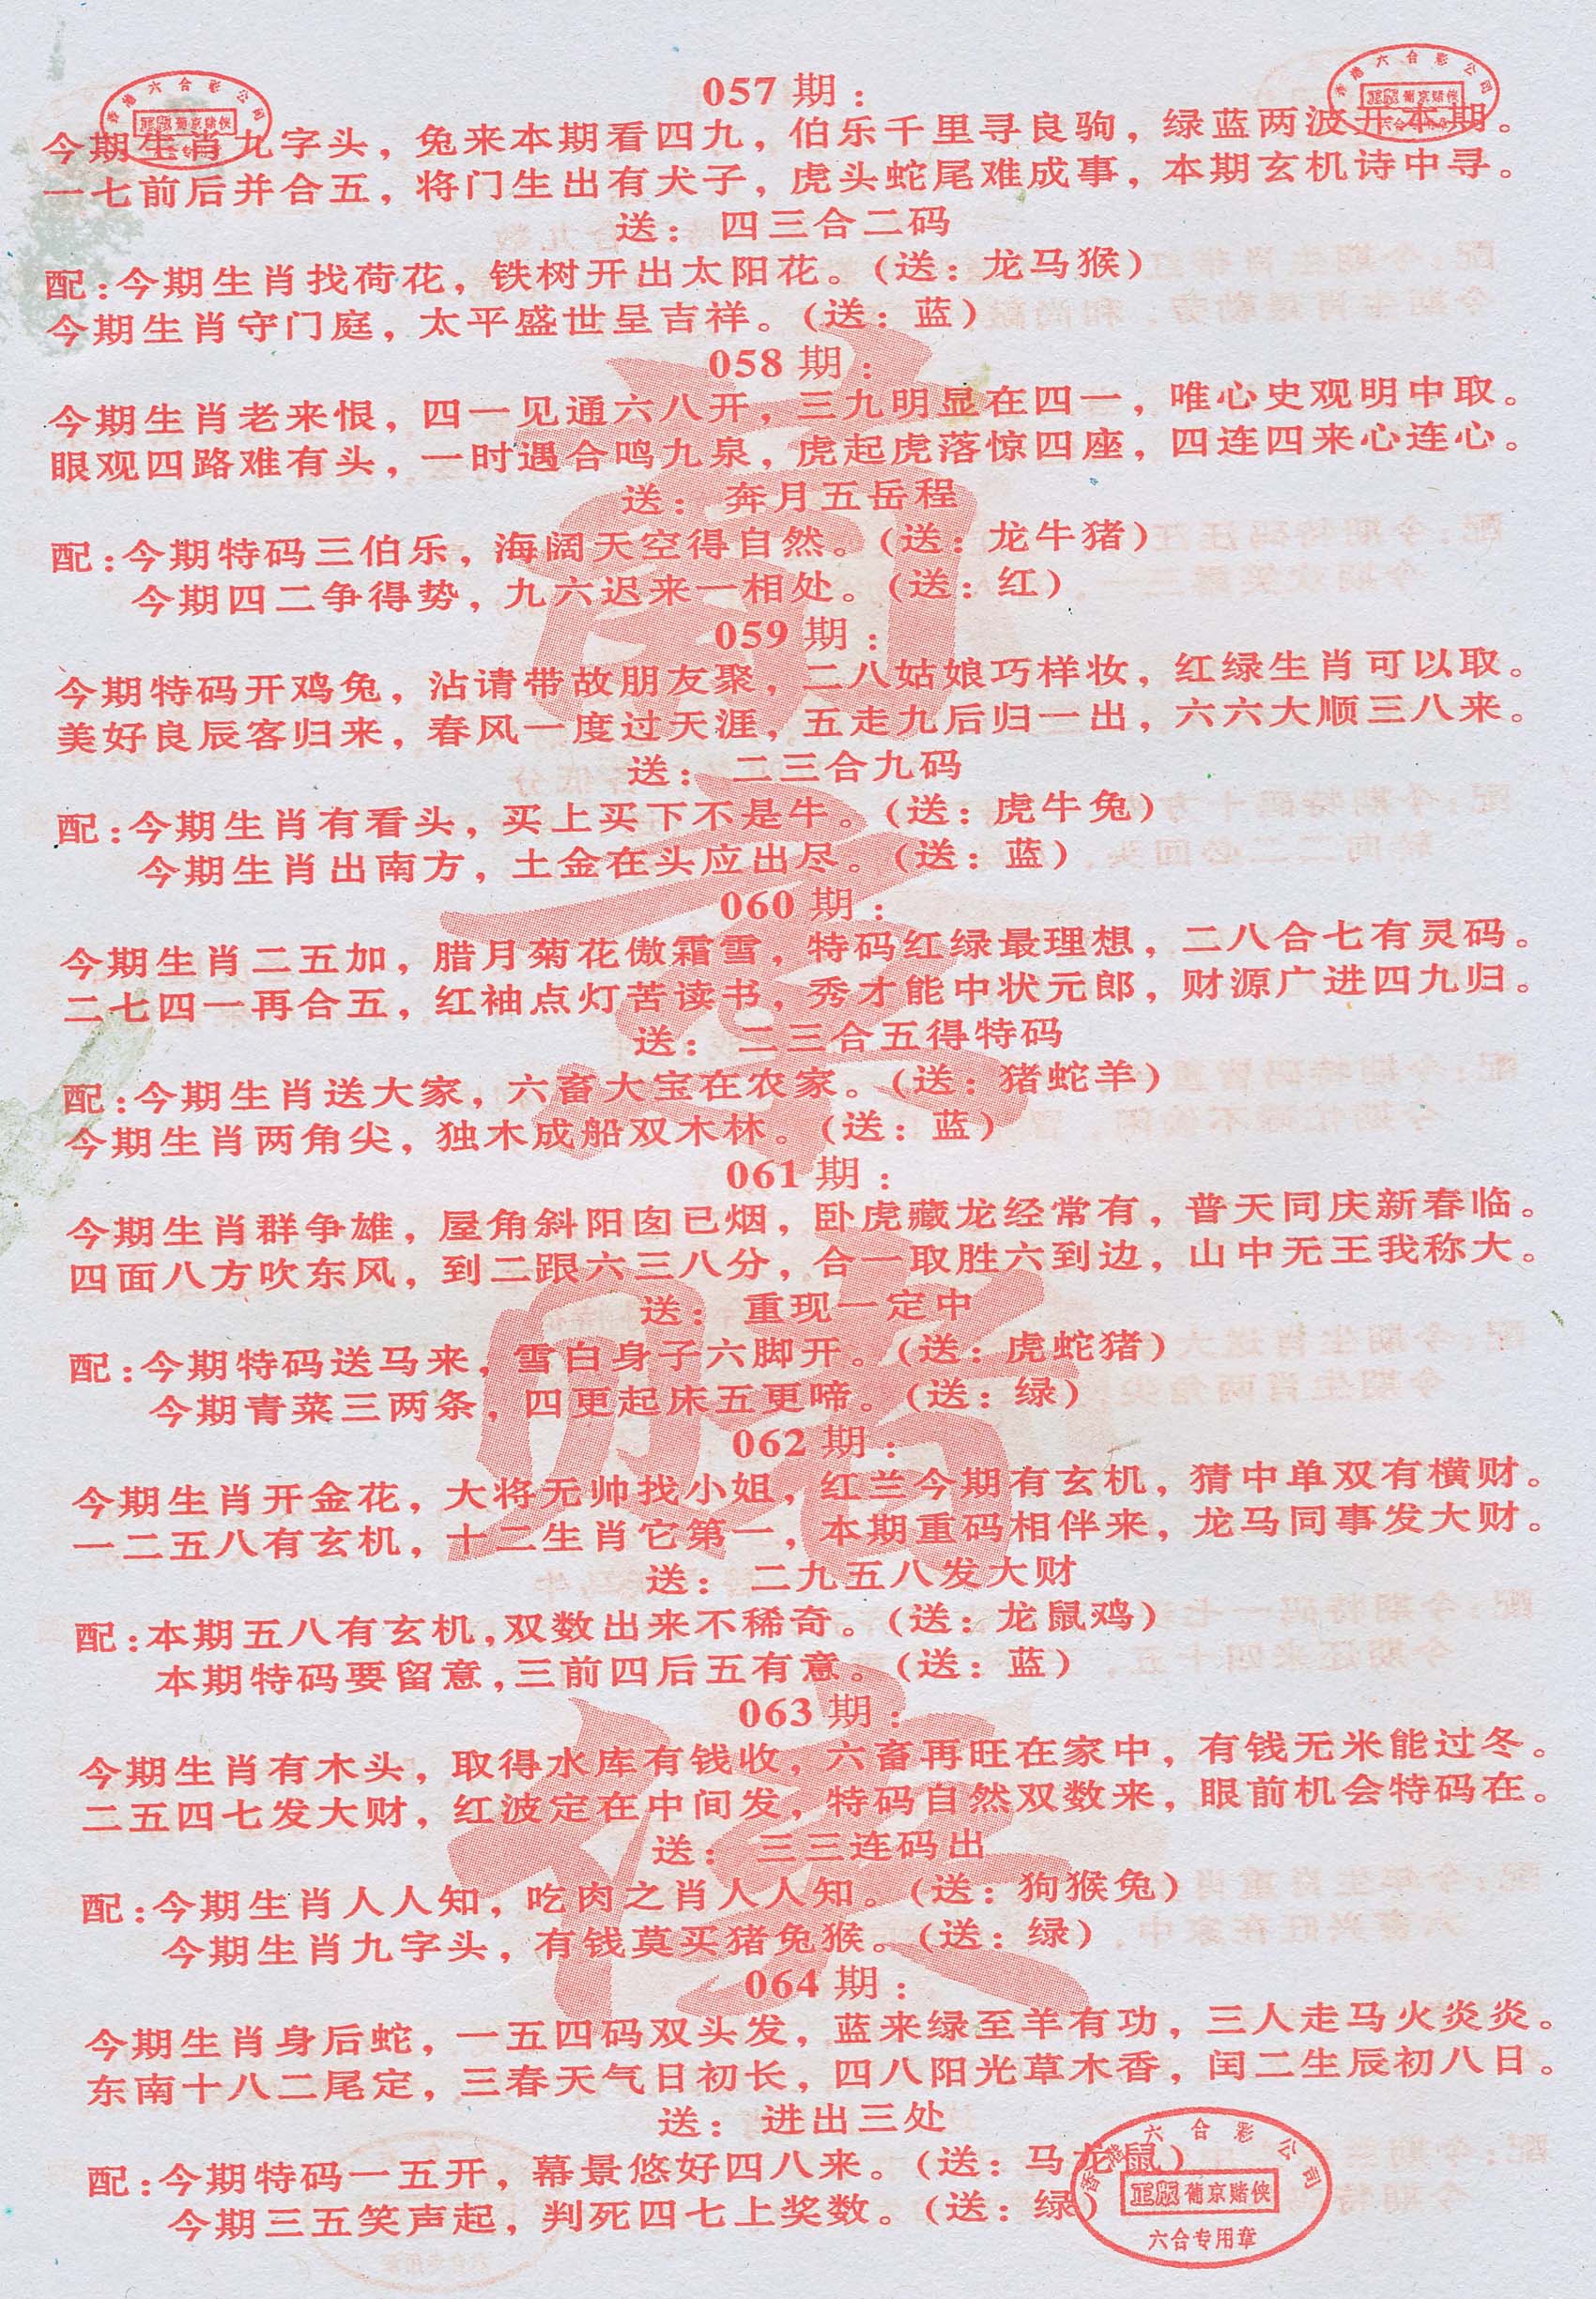 香港六合彩公司
正版葡京赌侠
六合专用章
香港六合彩公司
正版葡京赌侠
六合专用章
057期：
今期生肖九字头，兔来本期看四九，伯乐千里寻良驹，绿蓝两波开本期。
一七前后并合五，将门生出有犬子，虎头蛇尾难成事，本期玄机诗中寻。
送：四三合二码
配：今期生肖找荷花，铁树开出太阳花。（送：龙马猴）
今期生肖守门庭，太平盛世呈吉祥。（送：蓝）
058期：
今期生肖老来恨，四一见通六八开，三九明显在四一，唯心史观明中取。
眼观四路难有头，一时遇合鸣九泉，虎起虎落惊四座，四连四来心连心。
送：奔月五岳程
配：今期特码三伯乐，海阔天空得自然。（送：龙牛猪）
今期四二争得势，九六迟来一相处。（送：红）
059期：
今期特码开鸡兔，沾请带故朋友聚，二八姑娘巧样妆，红绿生肖可以取。
美好良辰客归来，春风一度过天涯，五走九后归一出，六六大顺三八来。
送：二三合九码
配：今期生肖有看头，买上买下不是牛。（送：虎牛兔）
今期生肖出南方，土金在头应出尽。（送：蓝）
060期：
今期生肖二五加，腊月菊花傲霜雪，特码红绿最理想，二八合七有灵码。
二七四一再合五，红袖点灯苦读书，秀才能中状元郎，财源广进四九归。
送：二三合五得特码
配：今期生肖送大家，六畜大宝在农家。（送：猪蛇羊）
今期生肖两角尖，独木成船双木林。（送：蓝）
061期：
今期生肖群争雄，屋角斜阳囱已烟，卧虎藏龙经常有，普天同庆新春临。
四面八方吹东风，到二跟六三八分，合一取胜六到边，山中无王我称大。
送：重现一定中
配：今期特码送马来，雪白身子六脚开。（送：虎蛇猪）
今期青菜三两条，四更起床五更啼。（送：绿）
062期：
今期生肖开金花，大将无帅找小姐，红兰今期有玄机，猜中单双有横财。
一二五八有玄机，十二生肖它第一，本期重码相伴来，龙马同事发大财。
送：二九五八发大财
配：本期五八有玄机，双数出来不稀奇。（送：龙鼠鸡）
本期特码要留意，三前四后五有意。（送：蓝）
063期：
今期生肖有木头，取得水库有钱收，六畜再旺在家中，有钱无米能过冬。
二五四七发大财，红波定在中间发，特码自然双数来，眼前机会特码在。
送：三三连码出
配：今期生肖人人知，吃肉之肖人人知。（送：狗猴兔）
今期生肖九字头，有钱莫买猪兔猴。（送：绿）
064期：
今期生肖身后蛇，一五四码双头发，蓝来绿至羊有功，三人走马火炎炎。
东南十八二尾定，三春天气日初长，四八阳光草木香，闰二生辰初八日。
送：进出三处
配：今期特码一五开，幕景悠好四八来。（送：马龙鼠）
今期三五笑声起，判死四七上奖数。（送：绿）
香港六合彩公司
正版葡京赌侠
六合专用章
葡京赌侠